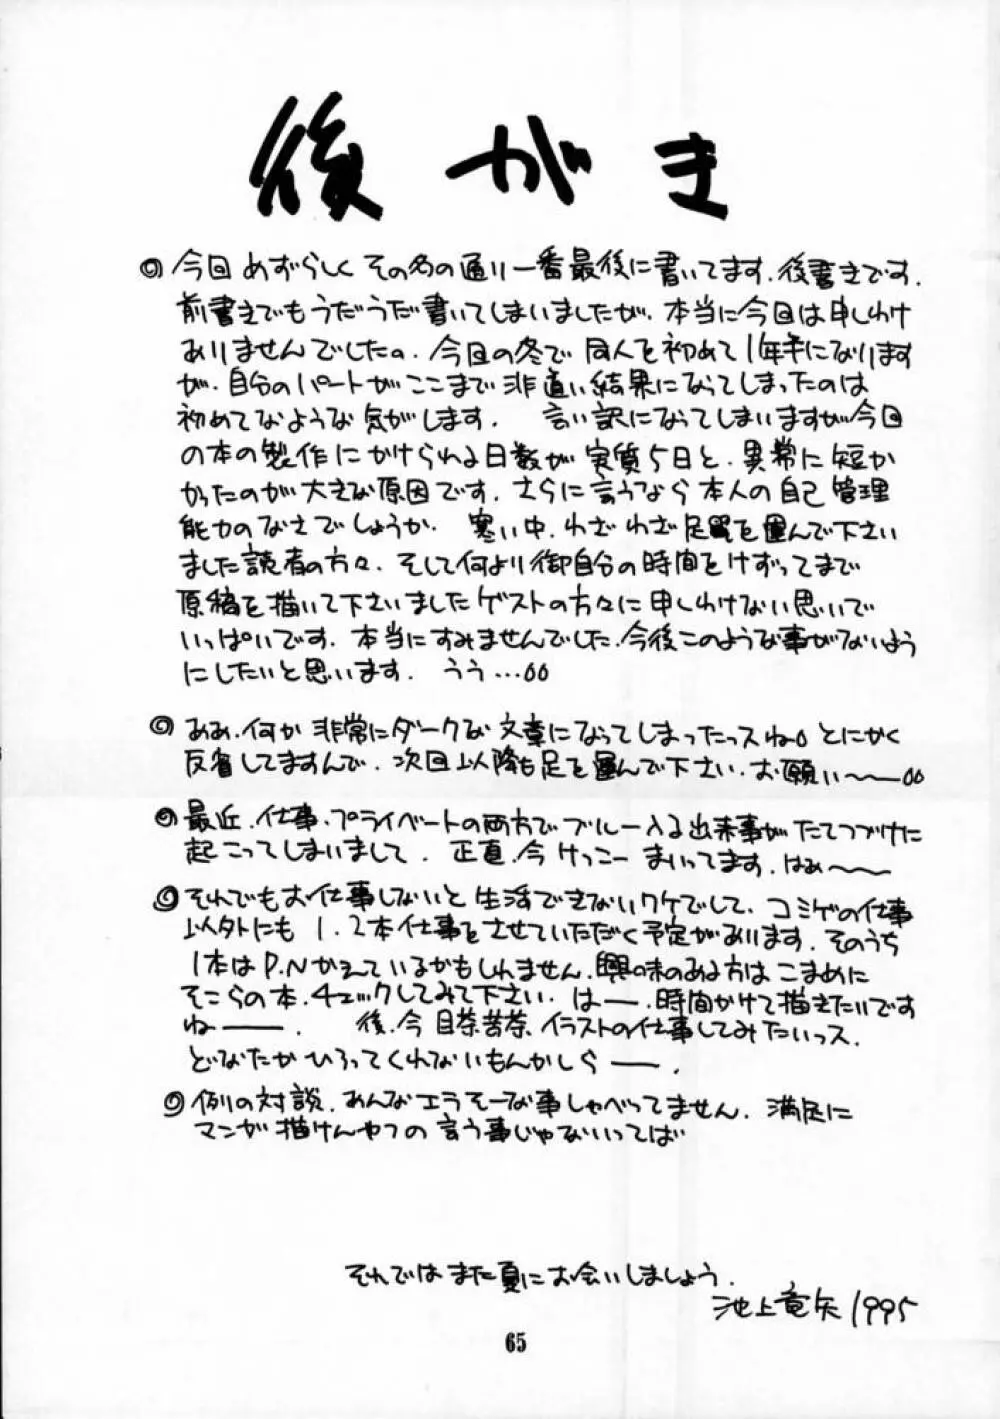 後がき
◎今回めずらしくその名の通り一番最後に書いてます.後書きです.
前書きでもうだうだ書いてしまいましたが.本当に今回は申しわけ
ありませんでした。今回の冬で同人を初めて1年半になります
が.自分のパートがここまで非道い結果になってしまったのは
初めてなような気がします. 言い訳になってしまいますが今回
の本の製作にかけられる日数が実質5日と.異常に短か
かったのが大きな原因です.さらに言うなら本人の自己管理
能力のなさでしょうか. 寒い中.わざわざ足を運んで下さい
ました読者の方々.そして何より御自分の時間をけずってまで
原稿を描いて下さいましたゲストの方々に申しわけない思いで
いっぱいです.本当にすみませんでした.今後このような事がないよう
にしたいと思います. うう…
◎ああ.何か非常にダークな文章になってしまったっスね。とにかく
反省してますんで.次回以降も足を運んで下さい.お願い〜
◎最近.仕事.プライベートの両方でブルー入る出来事がたてつづけに
起こってしまいまして.正直.今けっこーまいってます.はぁ〜
◎それでもお仕事しないと生活できないワケでして.コミケの仕事
以外にも1.2本仕事をさせていただく予定があります.そのうち
1本はP.Nかえているかもしれません.興味のある方はこまめに
そこらの本.チェックしてみて下さい.はー.時間かけて描きたいです
ねー. 後.今目茶苦茶.イラストの仕事してみたいっス.
どなたかひろってくれないもんかしらー.
◎例の対談.あんなエラそーな事しゃべってません.満足に
マンガ描けんやつの言う事じゃないってば
それではまた夏にお会いしましょう.
池上竜矢1995
65